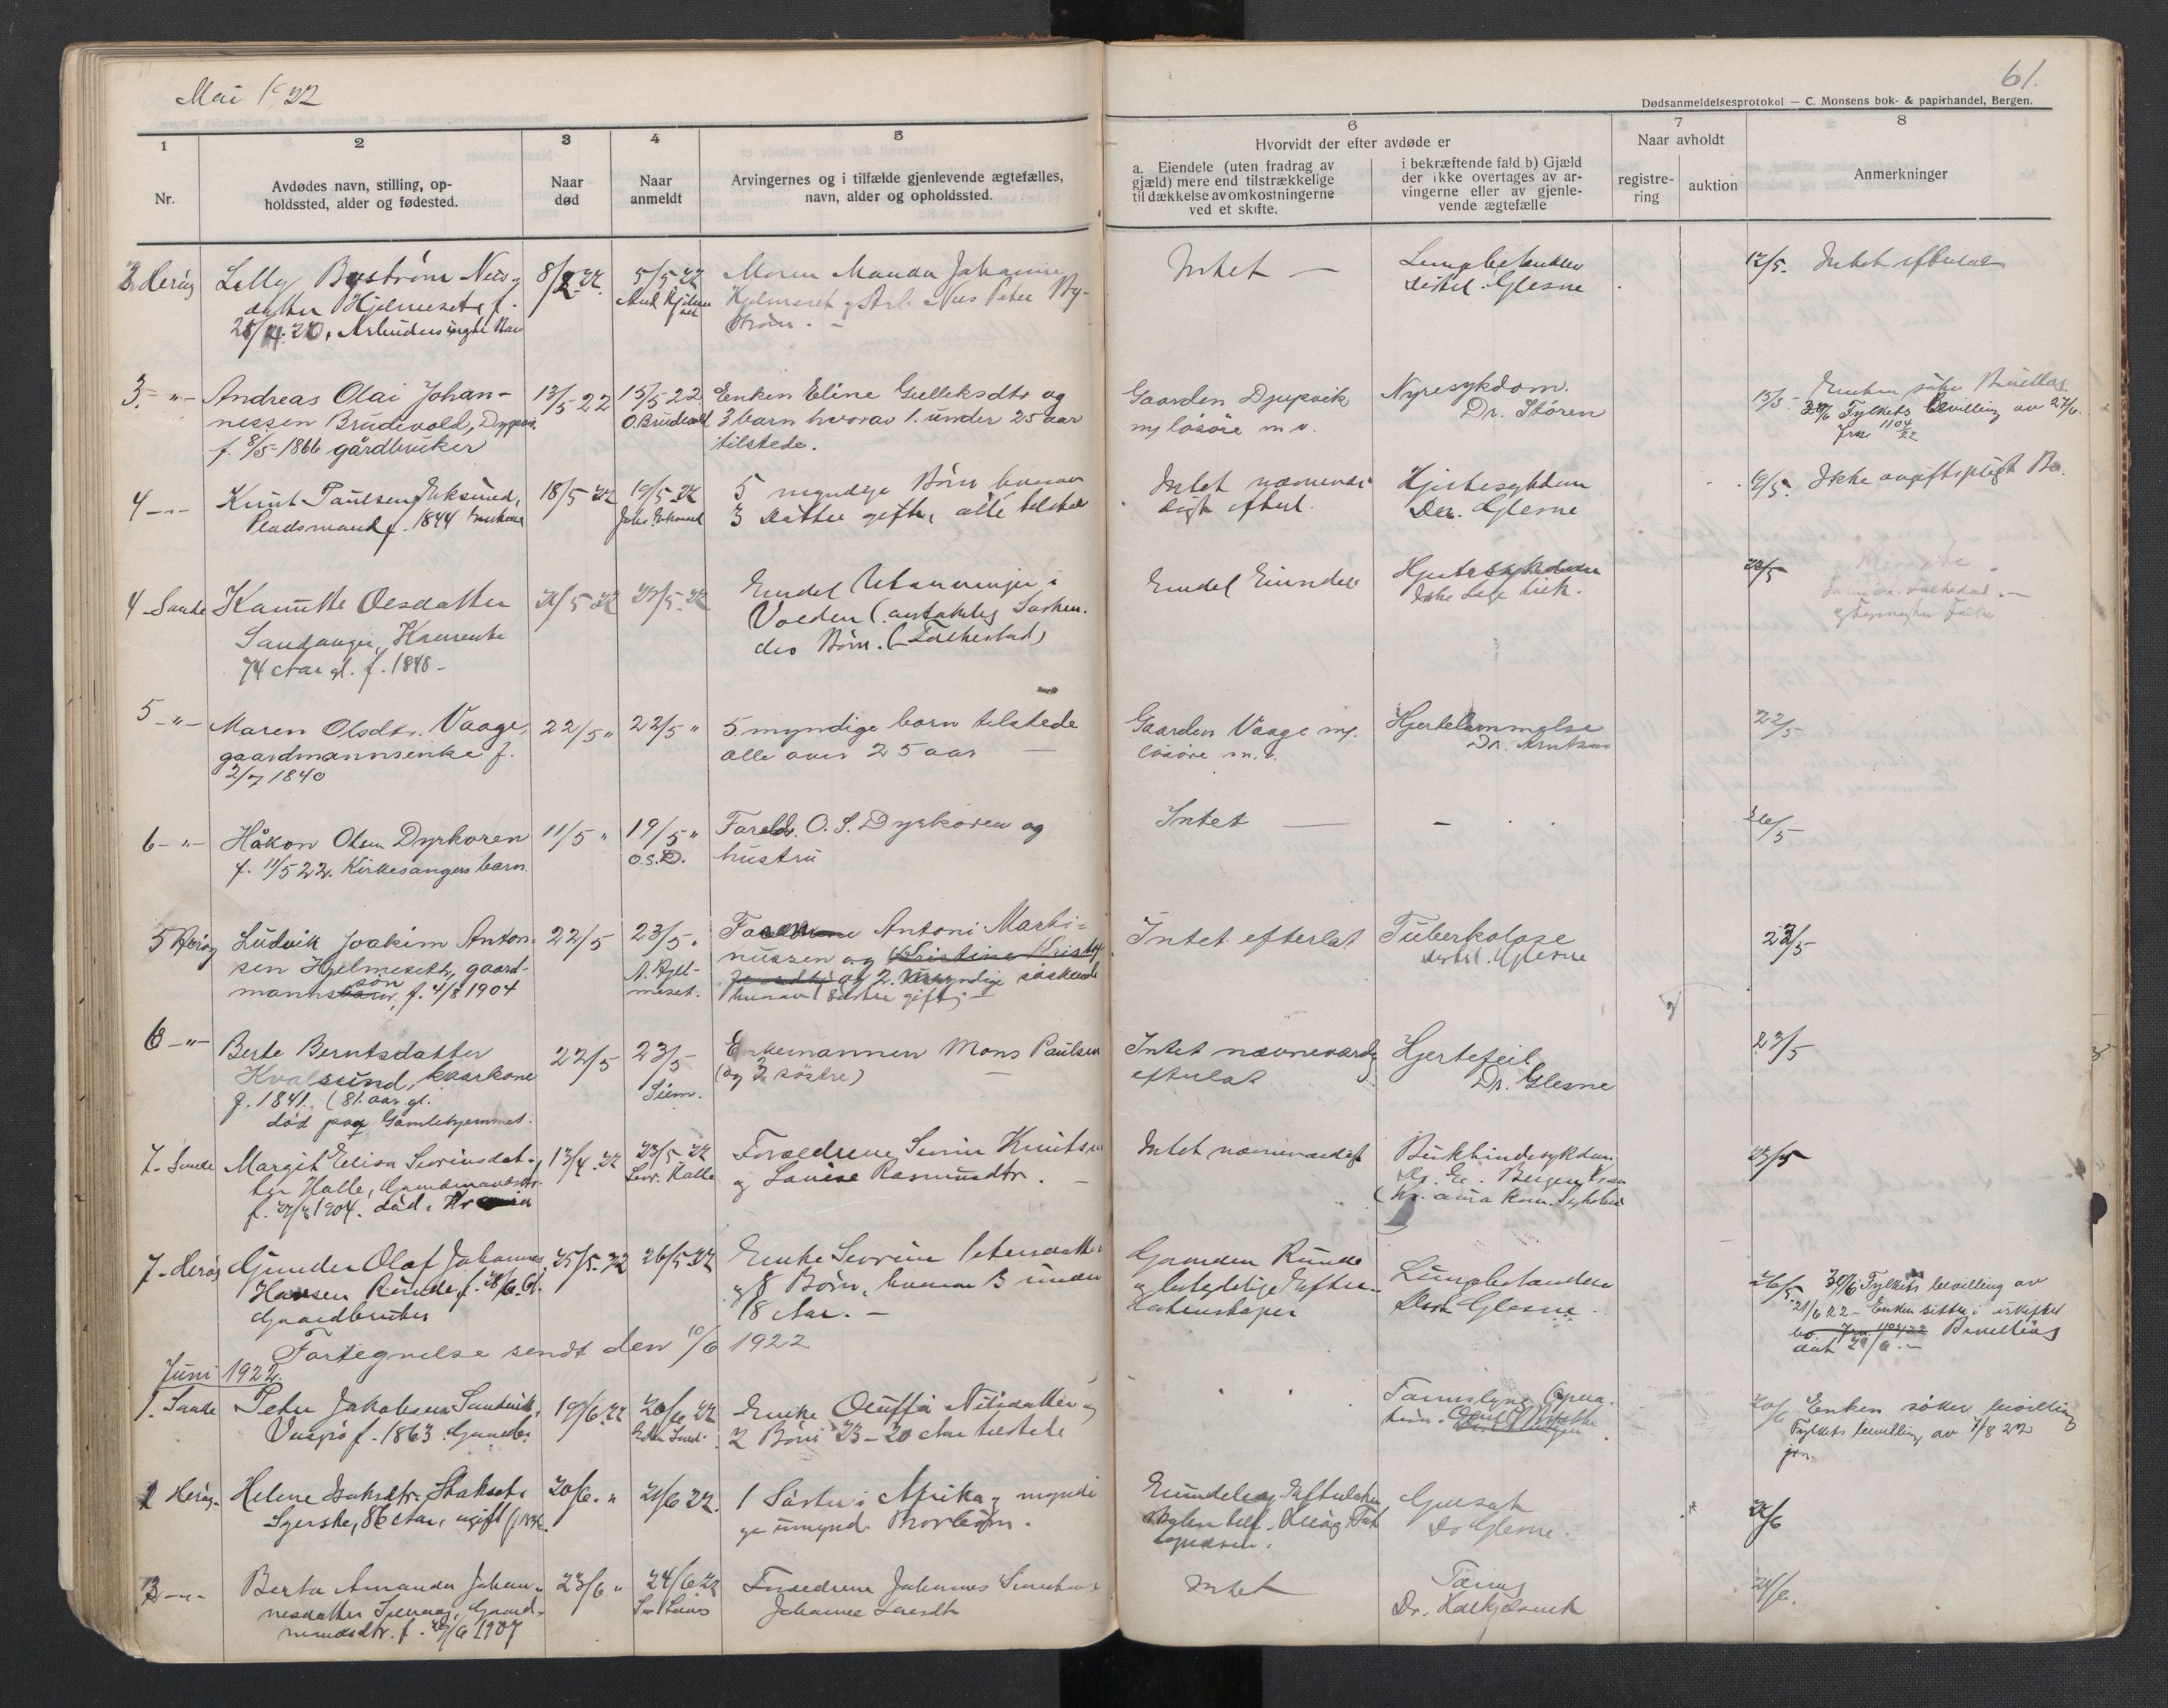 Mai 1922
61.
Dødsanmeldelsesprotokol — C. Monsens bok- & papirhandel, Bergen.
1
Nr.
2
Avdødes navn, stilling, op-
holdssted, alder og fødested.
3
Naar
død
4
Naar
anmeldt
5
Arvingernes og i tilfælde gjenlevende ægtefælles,
navn, alder og opholdssted.
6
Hvorvidt der efter avdøde er
a. Eiendele (uten fradrag av
gjæld) mere end tilstrækkelige
til dækkelse av omkostningerne
ved et skifte.
i bekræftende fald b) Gjæld
der ikke overtages av ar-
vingerne eller av gjenle-
vende ægtefælle
7
Naar avholdt
registre-
ring
auktion
8
Anmerkninger
2 Herøy
Lilly Bystrøm Nils-
datter Hjelmeset, f.
8/2-22.
5/5-22
Moren Manda Johanne
Hjelmeset og Arb. Nils Peter By-
strøm. -
Intet —
Lungebetændelse
Distrl. Glesne
12/5. Intet efterlat
3. -"-
Andreas Olai Johan-
nessen Brudevold, Djupvik
f. 8/5-1866 gårdbruker
13/5-22
15/5-22
O. Brudevold
Enken Eline Gulleksdtr og
3 barn hvorav 1. under 25 aar
tilstede.
Gaarden Djupvik
m/ løsøre m.v.
Nyresykdom.
Dr. Støren
15/5.
Enken søker Bevilling
30/6 Fylkets bevilling av 27/6.
Jnr 1104/22
4 -"-
Knut Paulsen Eksund,
Pladsmand f. 1844
18/5-22
19/5-22
5 myndige Børn hvorav
3 Døttre gifte, alle tilstede
Intet nævnevær-
digt efterl.
Hjertesykdom
Dr. Glesne
19/5. Ikke avgiftspligt Bo.
4 Sande
Olsdatter
74 Aar gl. f. 1848 -
21/5-22
22/5-22
Endel Utarvinger i
Volden (antakelig Søsken-
des Børn. (Folkestad)
Endel Eiendele
Hjertesykdom
Ikke Læge
22/5
5 -"-
Maren Olsdtr. Vaage,
gaardmannsenke f.
2/7 1840
22/5 "
22/5 "
5 myndige barn tilstede
alle over 25 aar —
Gaarden Vaage m/.
løsøre m.v.
Hjertelammelse
Dr. Arntsen
22/5
6 -"-
Håkon Olsen Dyrkoren
f. 11/5 22. Kirkesangers barn.
11/5 "
19/5 "
O.S.D.
Foreldr. O. S. Dyrkoren og
hustru
Intet —
26/5
5 Herøy
Ludvik Joakim Anton-
sen Hjelmeseth, gaard-
mannsson, f. 4/8 1904
22/5
23/5.
A. Hjel-
meset.
Faren Antoni Marti-
nussen og Kristine Krist
og 2. myndige søskende
hvorav 1 Søster gift; -
Intet efterlat
Tuberkolose
Distrl. Glesne
23/5
6 -"-
Berte Berntsdatter
Kvalsund, kaarkone
f. 1841. (81. aar gl.
død paa Gamlehjemmet.
22/5
23/5
Siem.
Enkemannen Mons Paulsen
(og 2 søstre) —
Intet nævneværdig
efterlat
Hjertefeil
Dr. Glesne
23/5
7. Sande
Margit Elisa Severinsdat-
ter Halle, Gaardmandsdtr.
f. 27/8 1904. død i Kr
13/4-22
23/5-22
Sev. Halle
Forældrene Severin Knutsen
og Lovise Rasmusdtr. —
Intet nævneværdigt
Bukhindesykdom
23/5
7- Herøy
Gunder Olaf Johannes
Hansen Runde, f. 28/6. 61.
Gaardbruker
25/5-22
26/5-22
Enke Severine Petersdatter
og 8 Børn, hvorav 3 under
18 Aar. —
Gaarden Runde
og betydelige Efter-
latenskaper
Lungebetændelse
Distr Glesne.
26/5
30/6 Fylkets bevilling av
21/6 22 - Enken sitter i uskiftet
bo. Jnr. 1103/22 Bevilling
dat 29/6. -
Fortegnelse sendt den 10/6 1922
Juni 1922.
1. Sande
Peter Jakobsen Sandvik,
f. 1863. Gaardbr.
19/6-22
20/6 22
Enke Oluffa Nilsdatter og
2 Børn 23 - 20 Aar tilstede
20/6
Enken søker bevilling
Fylkets bevilling av 1/8 22
jnr.
2 Herøy
Helene Isaksdtr.
Syerske, 86 Aar, ugift
20/6. "
21/6 22.
1 Søster i Afrika og myndi
ge umynd. Brorbørn.
Dr Glesne.
21/6
3 -"-
Berta Amanda Johan-
nesdatter
mandsdtr. f. 1907
23/6 "
24/6 22
Forældrene Johannes
Johanne Larsdtr
Intet
24/6.